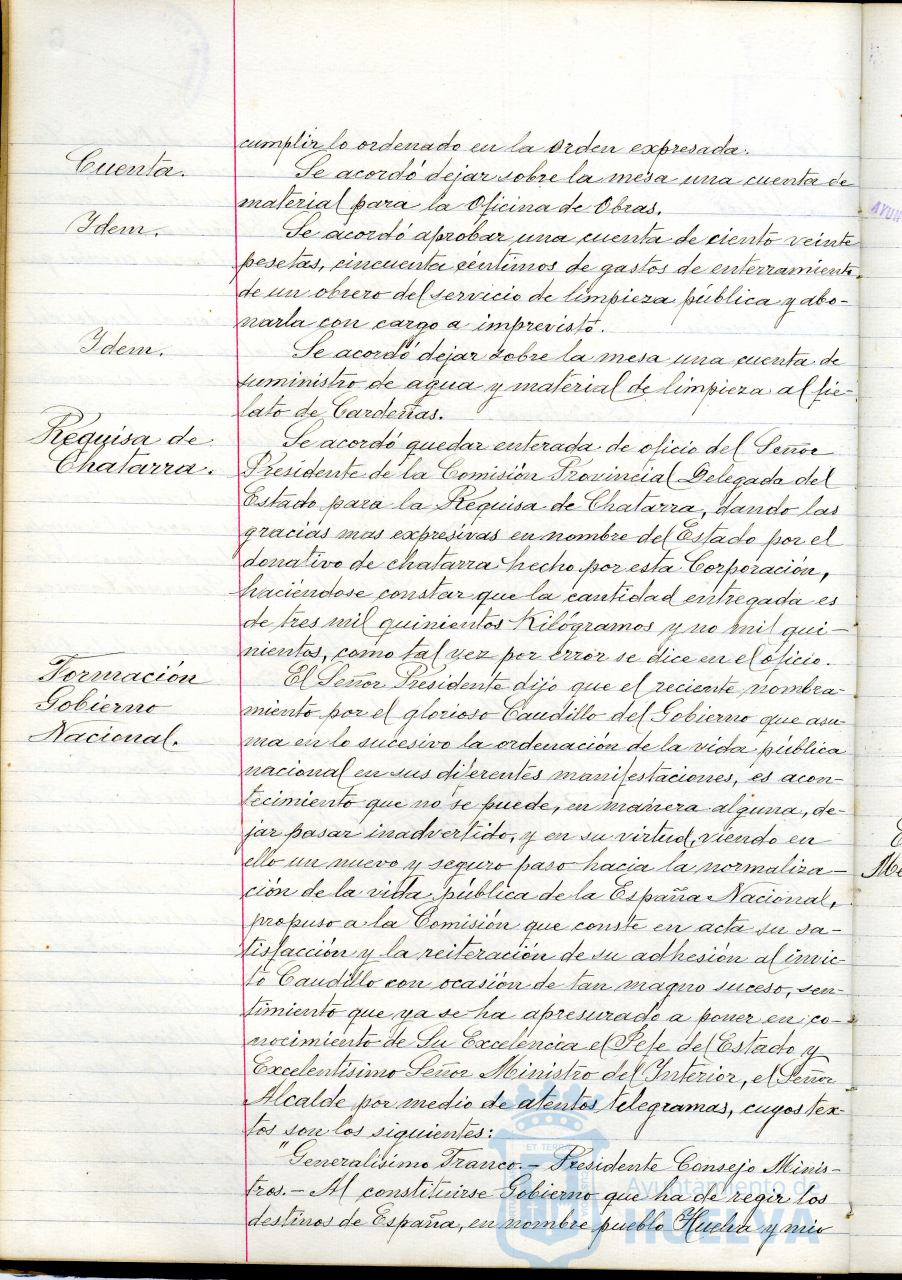 cumplir lo ordenado en la orden expresada.
Cuenta.
Se acordó dejar sobre la mesa una cuenta de
material para la Oficina de Obras.
Idem.
Se acordó aprobar una cuenta de ciento veinte
pesetas, cincuenta céntimos de gastos de enterramiento
de un obrero del servicio de limpieza pública y abo-
narla con cargo a imprevisto.
Idem.
Se acordó dejar sobre la mesa una cuenta de
suministro de agua y material de limpieza al fie-
lato de Cardeñas.
Requisa de
Chatarra.
Se acordó quedar enterada de oficio del Señor
Presidente de la Comisión Provincial Delegada del
Estado para la Requisa de Chatarra, dando las
gracias mas expresivas en nombre del Estado por el
donativo de chatarra hecho por esta Corporación,
haciéndose constar que la cantidad entregada es
de tres mil quinientos Kilógramos y no mil qui-
nientos, como tal vez por error se dice en el oficio.
Formación
Gobierno
Nacional.
El Señor Presidente dijo que el reciente nombra-
miento por el glorioso Caudillo del Gobierno que asu-
ma en lo sucesivo la ordenación de la vida pública
nacional en sus diferentes manifestaciones, es acon-
tecimiento que no se puede, en manera alguna, de-
jar pasar inadvertido, y en su virtud, viendo en
ello un nuevo y seguro paso hacia la normaliza-
ción de la vida pública de la España Nacional,
propuso a la Comisión que conste en acta su sa-
tisfacción y la reiteración de su adhesión al invic-
to Caudillo con ocasión de tan magno suceso, sen-
timiento que ya se ha apresurado a poner en co-
nocimiento de Su Excelencia el Jefe del Estado y
Excelentísimo Señor Ministro del Interior, el Señor
Alcalde por medio de atentos telegramas, cuyos tex-
tos son los siguientes:
"Generalísimo Franco.- Presidente Consejo Minis-
tros.- Al constituirse Gobierno que ha de regir los
destinos de España, en nombre pueblo Huelva y mio
Ayuntamiento de
HUELVA